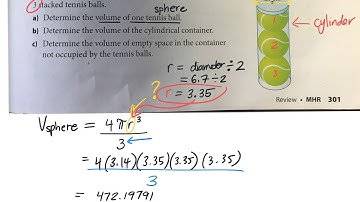 sphere
3 stacked tennis balls.
a) Determine the volume of one tennis ball.
b) Determine the volume of the cylindrical container.
c) Determine the volume of empty space in the container
not occupied by the tennis balls.
1
2
3
cylinder
r = diameter ÷ 2
= 6.7 ÷ 2
r = 3.35
Review • MHR 301
?
Vsphere = 4πr³
3
= 4(3.14)(3.35)(3.35)(3.35)
3
= 472.19791